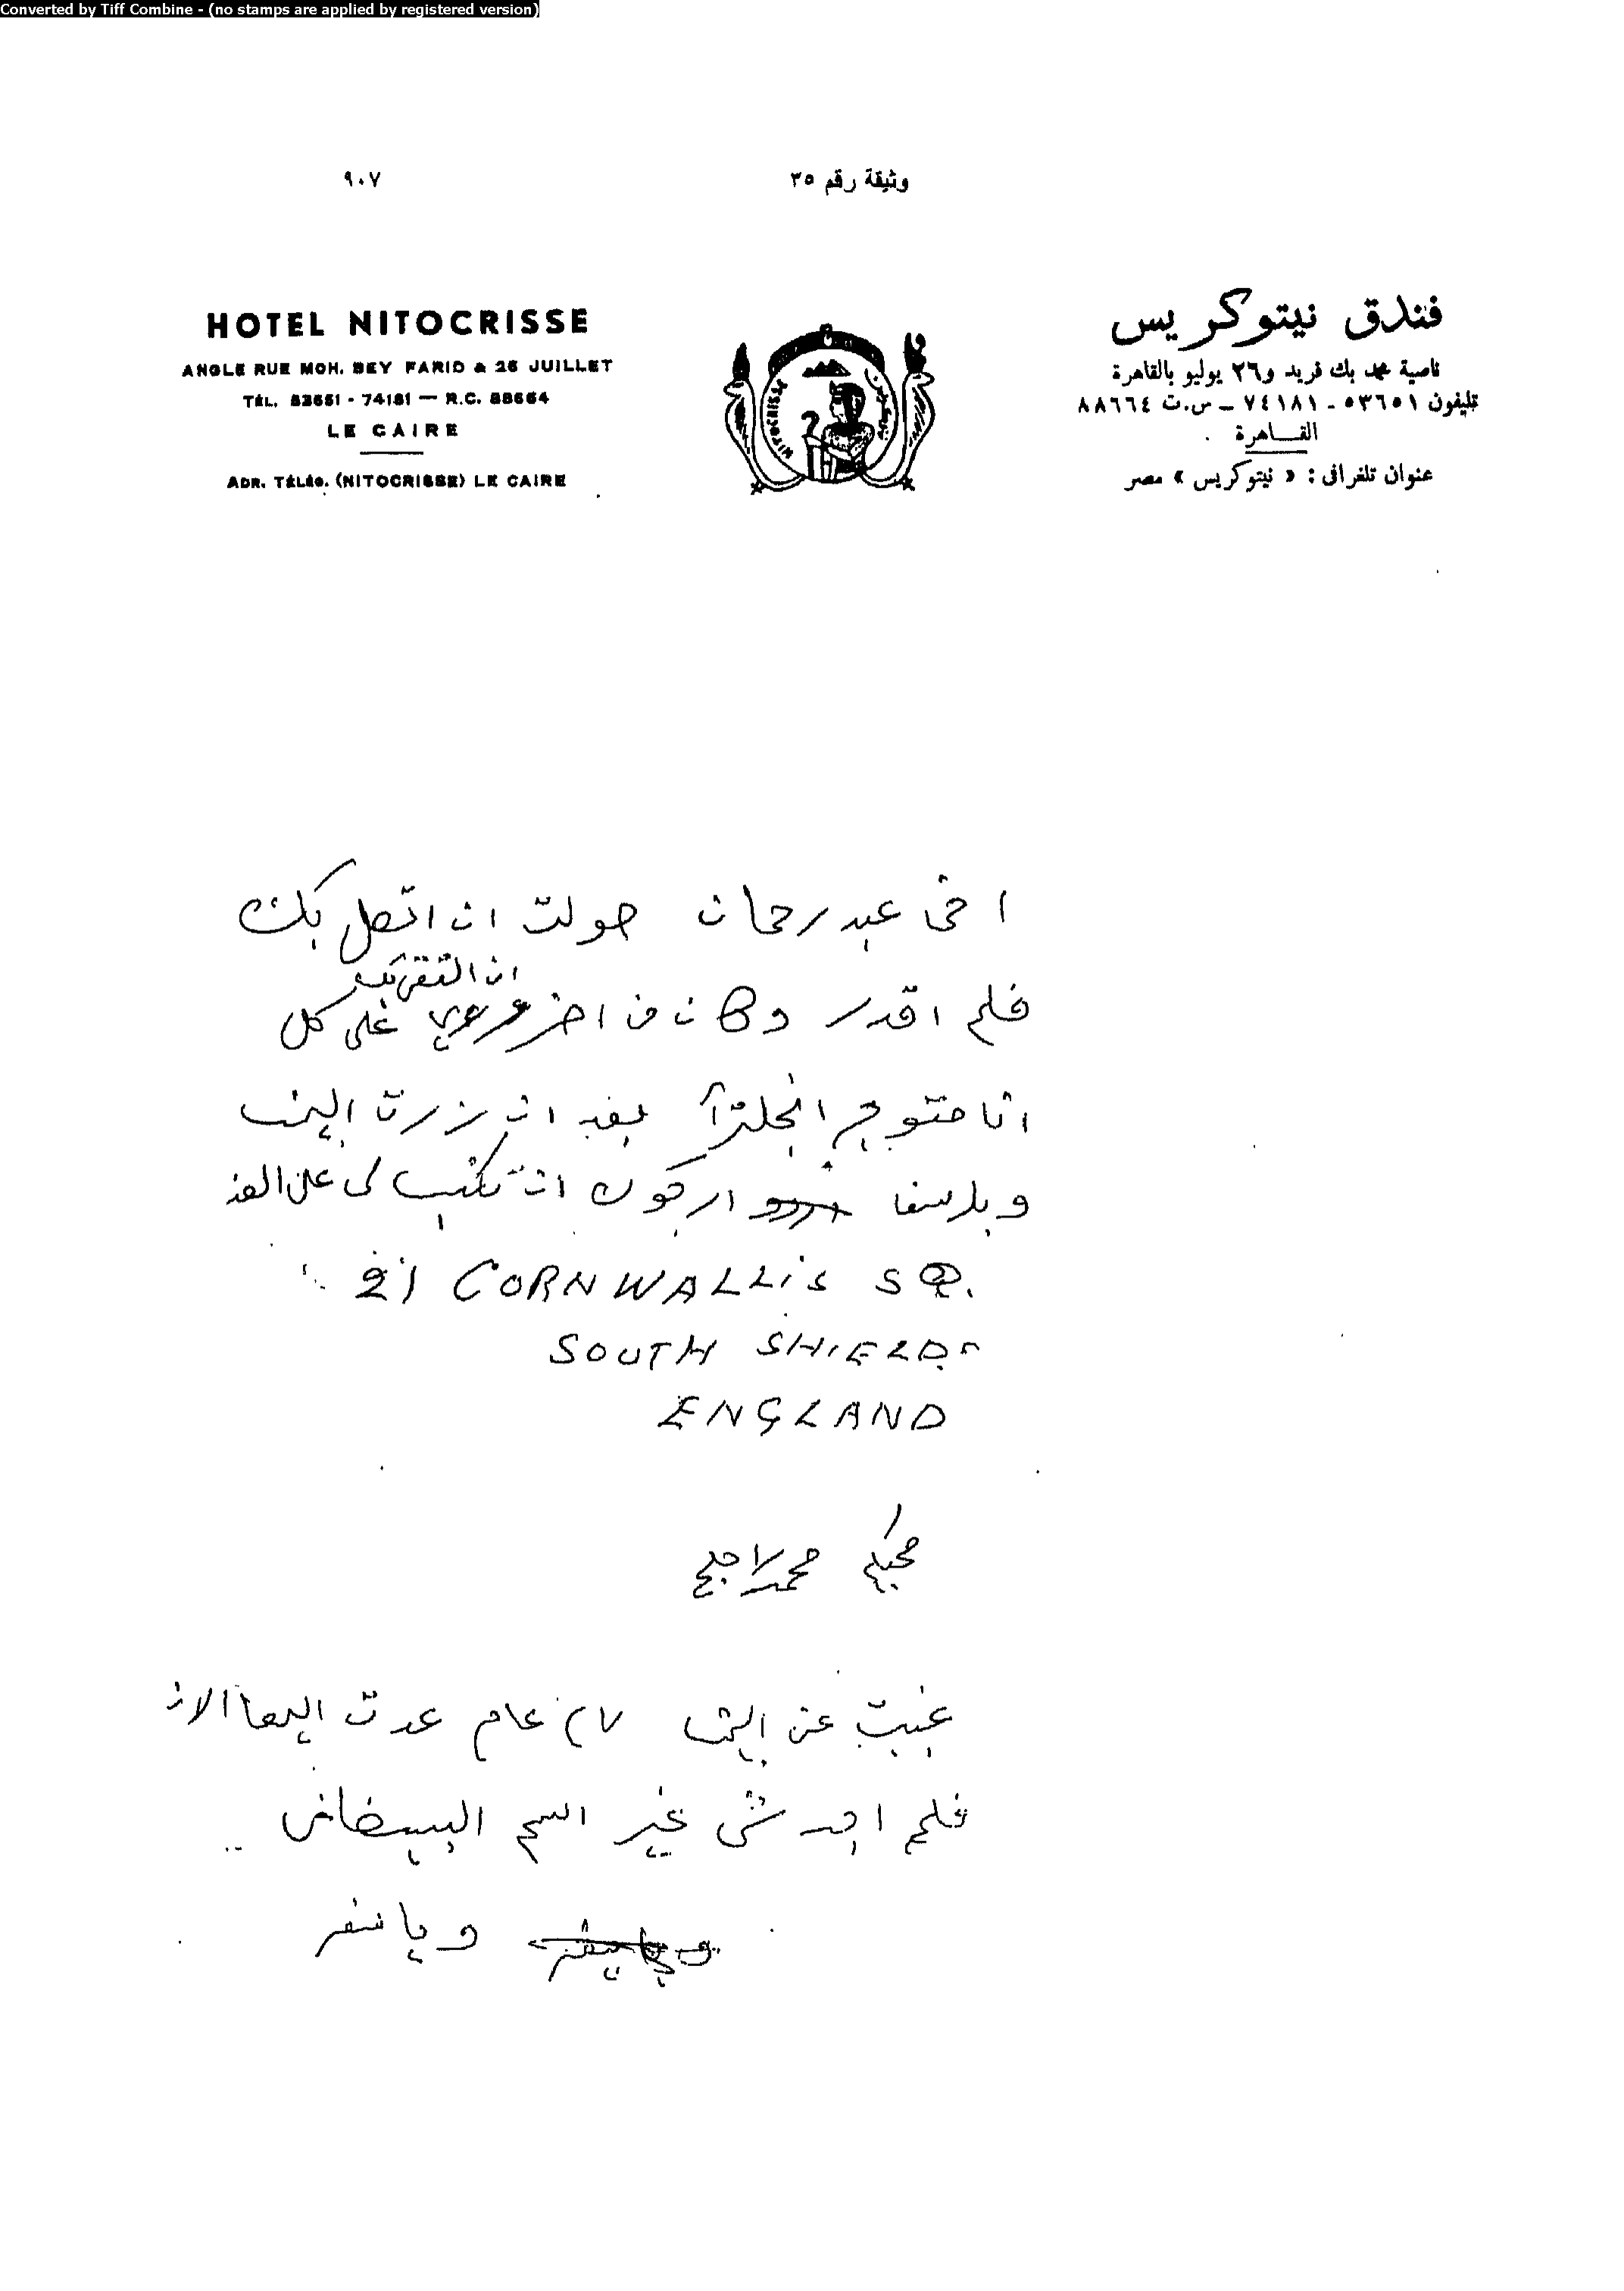 Converted by Tiff Combine - (no stamps are applied by registered version)
وثيقة رقم ٣٥
٩٠٧
فندق نيتوكريس
ناصية محمد بك فريد و٢٦ يوليو بالقاهرة
تليفون ٥٣٦٥١ - ٧٤١٨١ - س.ت ٨٨٦٦٤
القاهرة
عنوان تلغرافى : « نيتوكريس » مصر
HOTEL NITOCRISSE
ANGLE RUE MOH. BEY FARID & 26 JUILLET
TÉL. 53651 - 74181 — R.C. 88664
LE CAIRE
ADR. TÉLÉG. (NITOCRISSE) LE CAIRE
NITOCRISSE
اخى عبد رحمان حولت ان اتصل بك
فلم اقدر وكان من اخر على كل
انا متوجه انجلترا بعد ان زرت اليمن
ارجوك ان تكتب لى على
21 CORNWALLIS SQ.
SOUTH SHIELDS
ENGLAND
محمد
غبت عن اليمن ٢٧ عام عدت اليها الان
فلم اجد شى غير اسم البيضانى